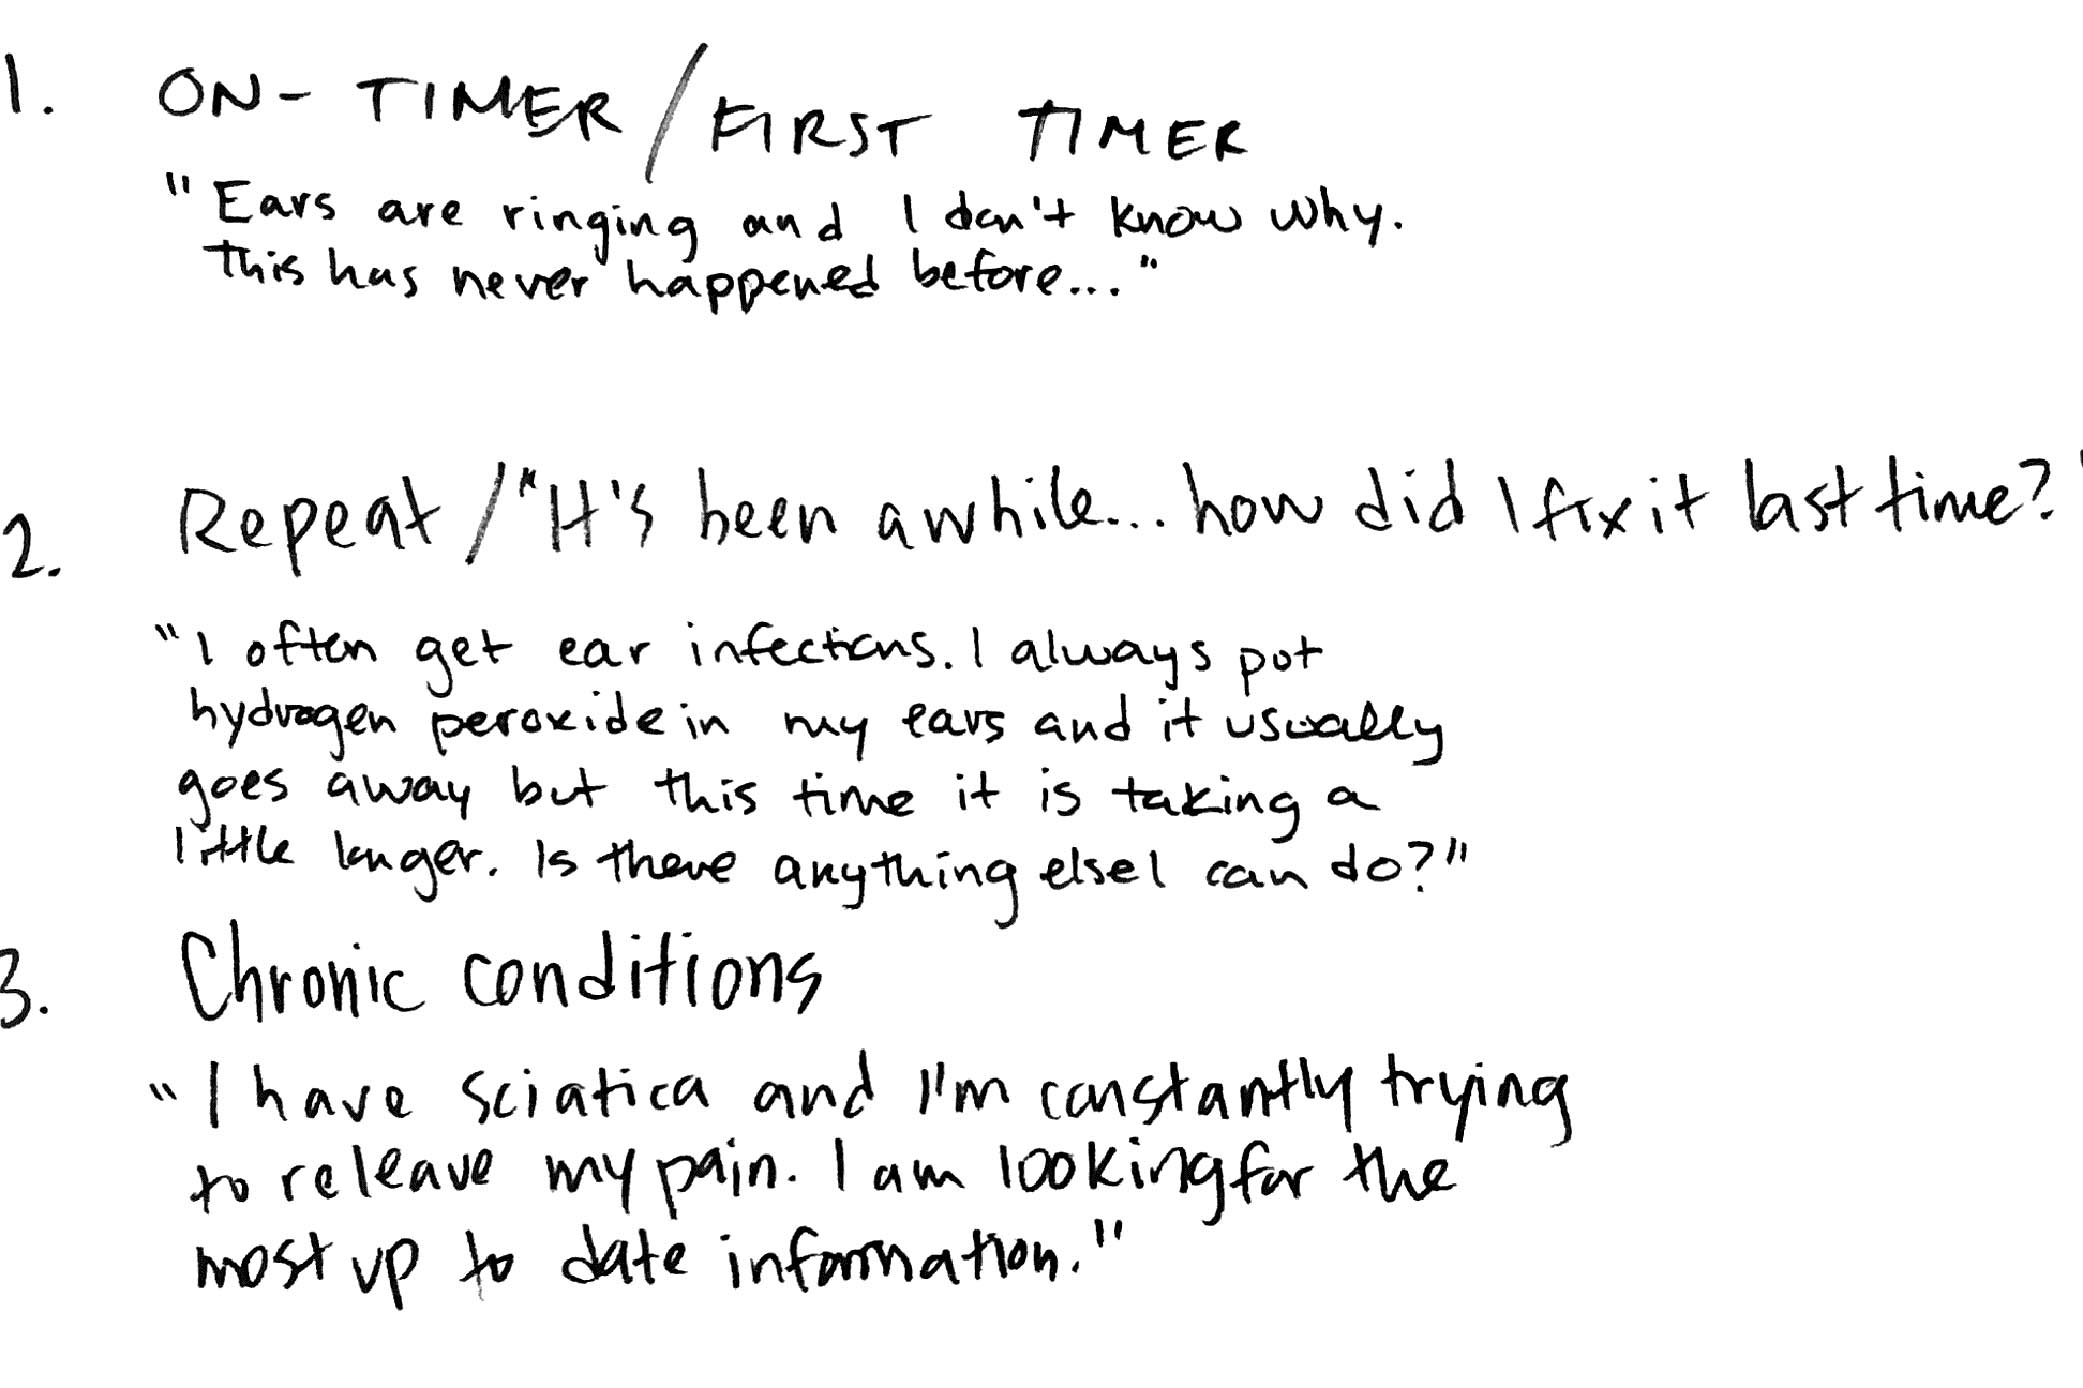 1. ON-TIMER / FIRST TIMER
"Ears are ringing and I don't know why.
this has never happened before..."
2. Repeat / "It's been awhile... how did I fix it last time?"
"I often get ear infections. I always put
hydrogen peroxide in my ears and it usually
goes away but this time it is taking a
little longer. Is there anything else I can do?"
3. Chronic conditions
"I have sciatica and I'm constantly trying
to releave my pain. I am looking for the
most up to date information."